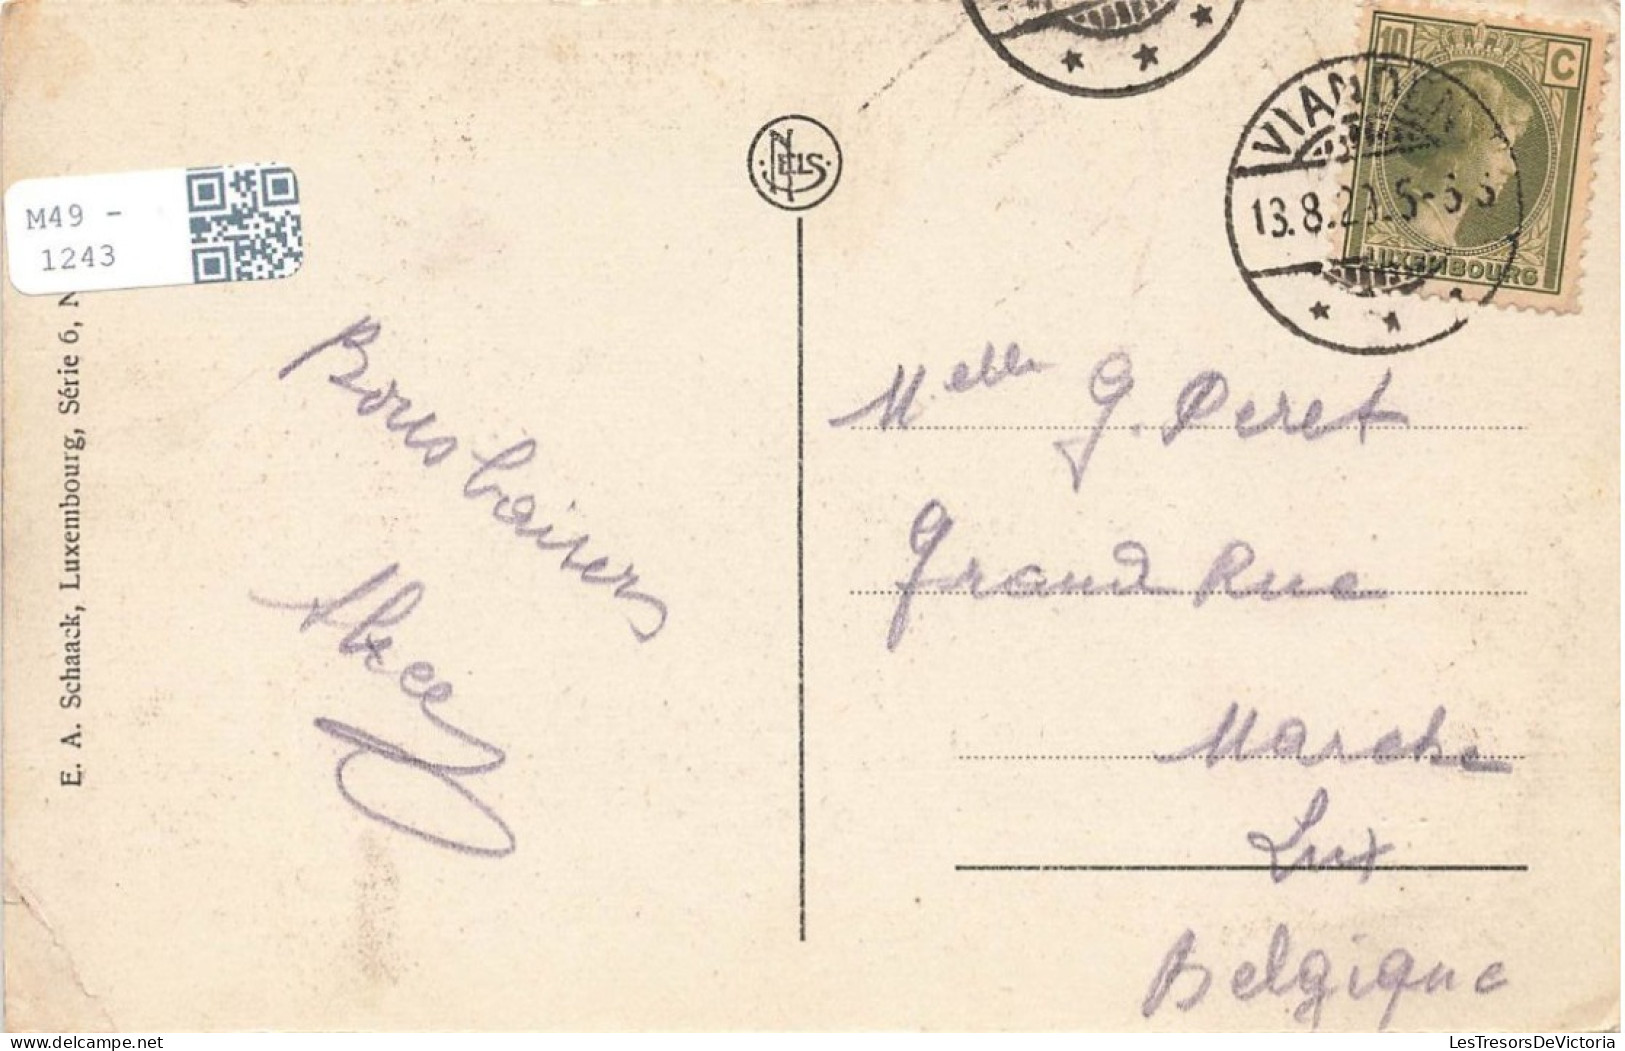 M49 -
1243
E. A. Schaack, Luxembourg, Série 6, N
NELS
VIANDEN
13.8.29.5-6 S
10 C
LUXEMBOURG
Bons baisers
Melle G. Peret
Grand Rue
Marche
Lux
Belgique
LesTresorsDeVictoria